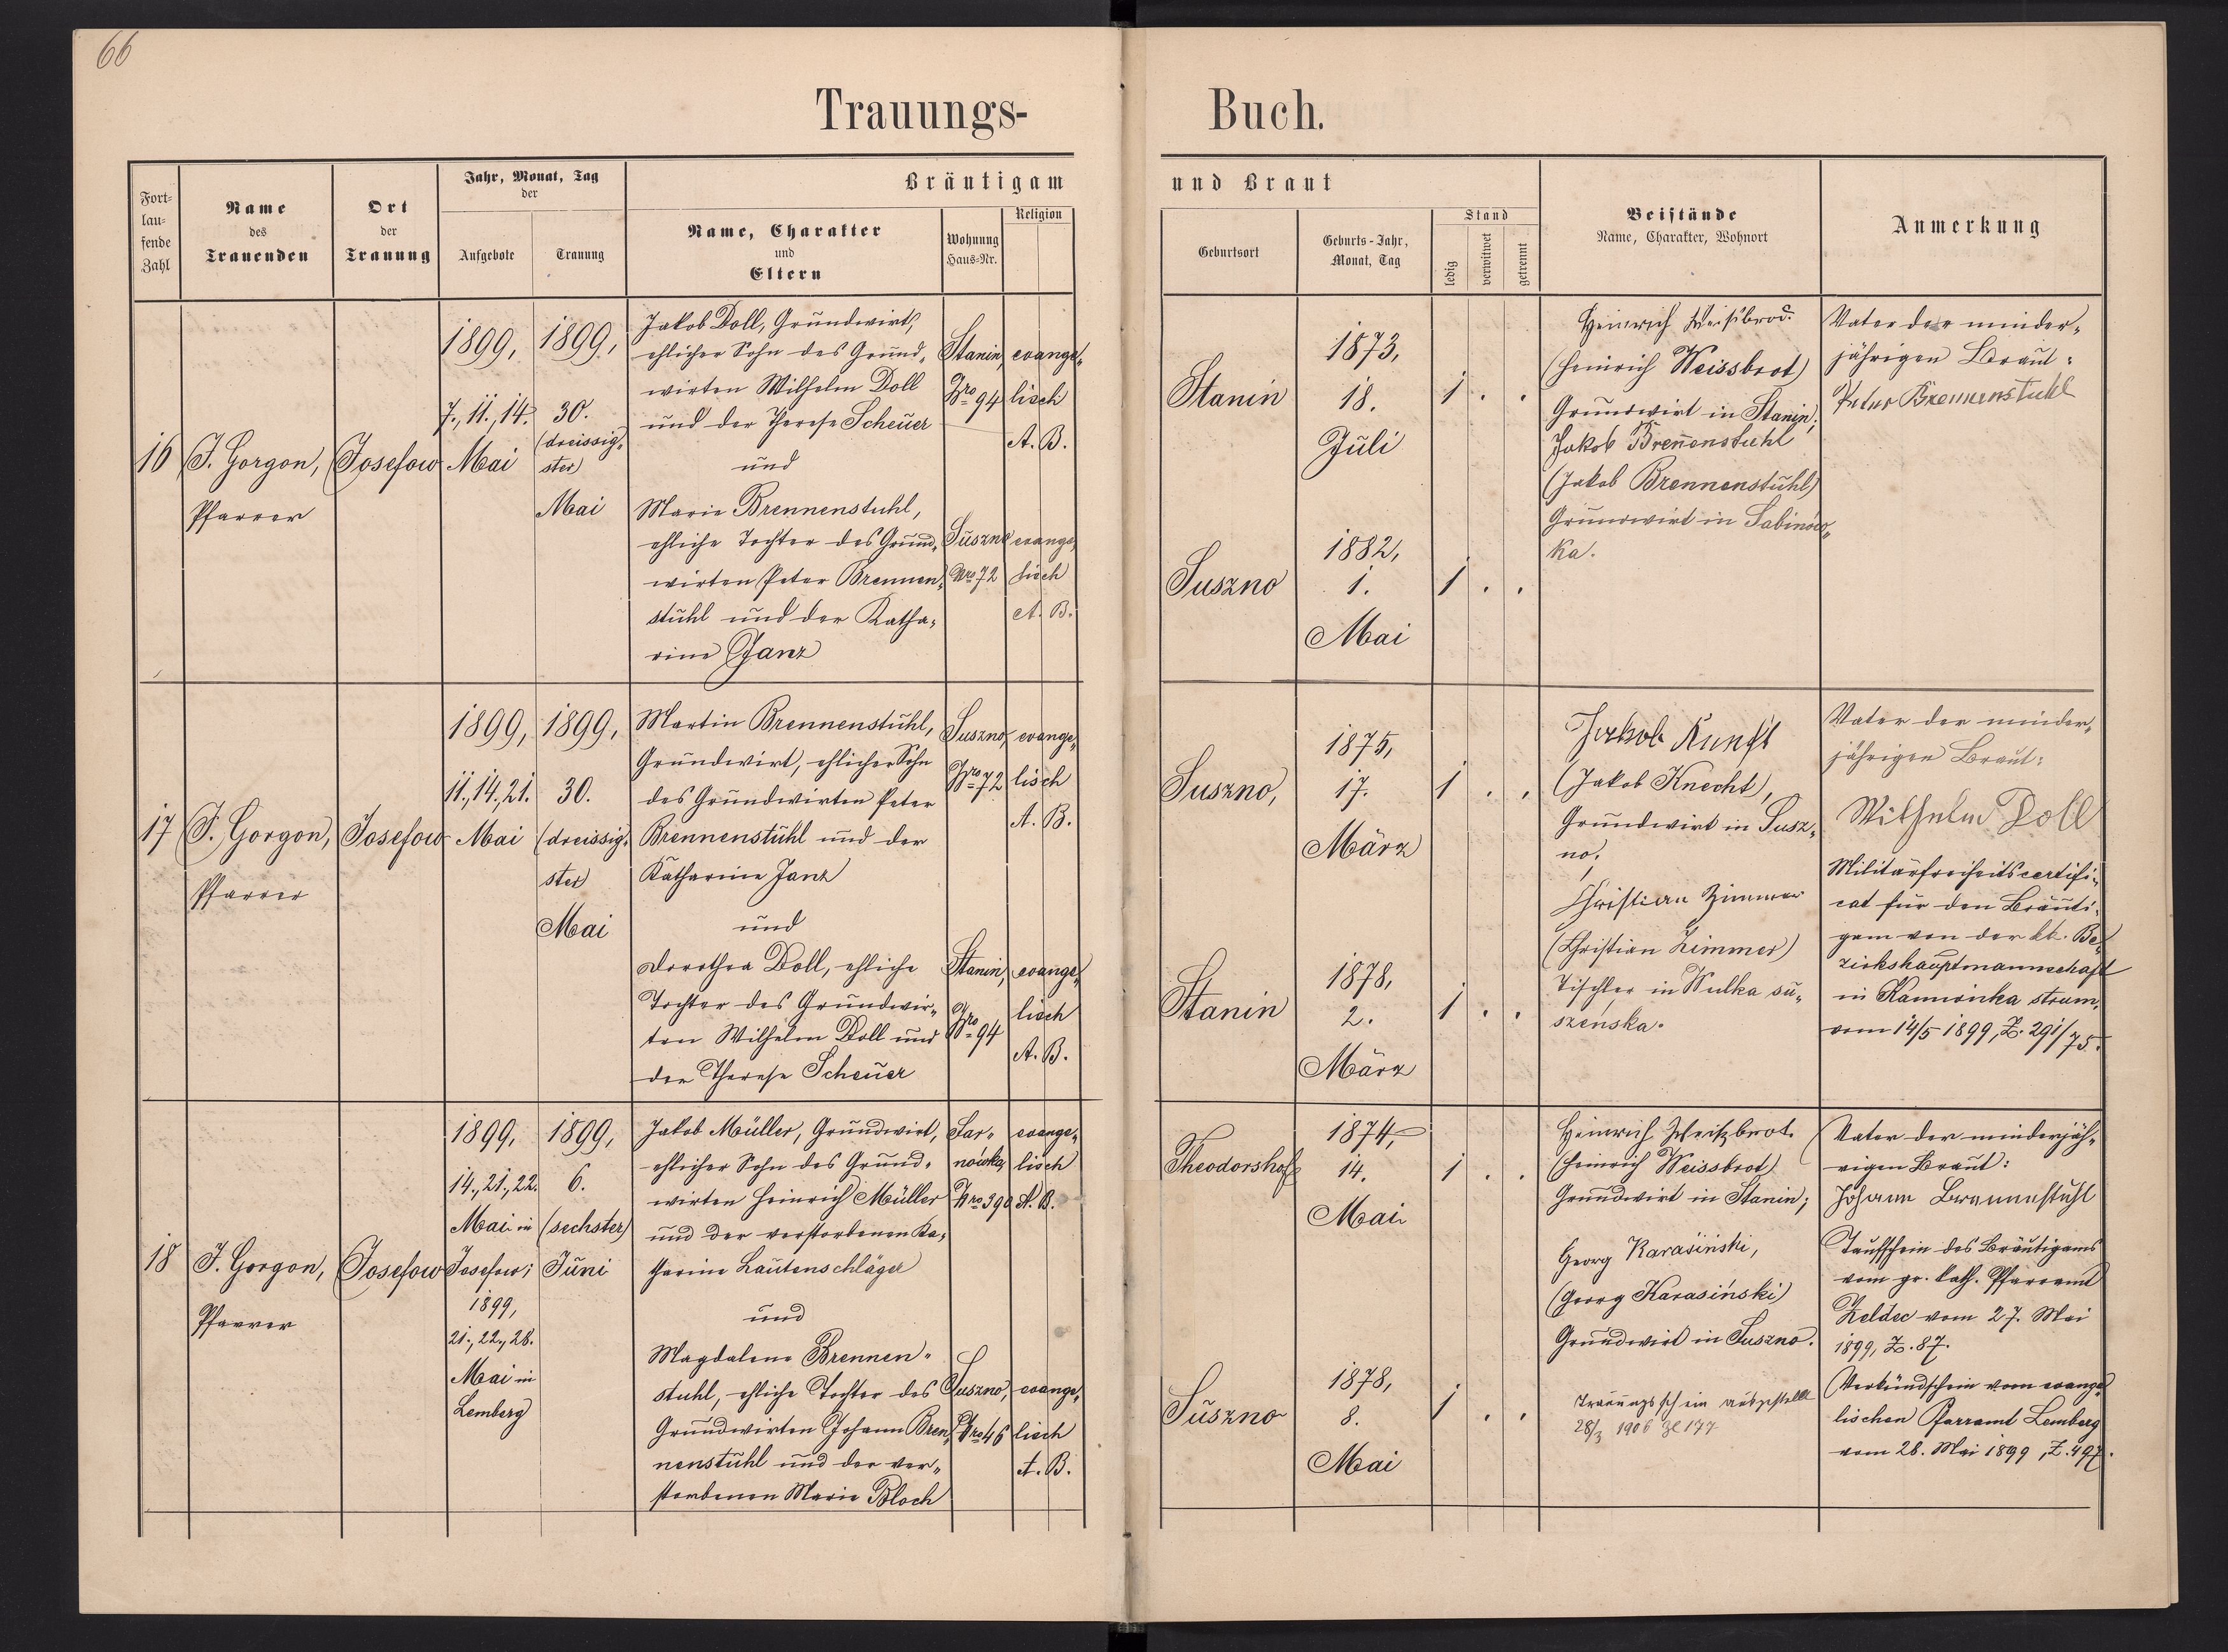 66
Trauungs-
Buch.
Fort-
lau-
fende
Zahl
Name
des
Trauenden
Ort
der
Trauung
Jahr, Monat, Tag
der
Aufgebote
Trauung
Bräutigam
Name, Charakter
und
Eltern
Wohnung
Haus-Nr.
Religion
und Braut
Geburtsort
Geburts-Jahr,
Monat, Tag
Stand
ledig
verwitwet
getrennt
Beistände
Name, Charakter, Wohnort
Anmerkung
16
J. Gorgon,
Pfarrer
Josefow
1899,
7., 11., 14.
Mai
1899,
30.
(dreissig-
ster)
Mai
Jakob Doll, Grundwirt,
ehlicher Sohn des Grund-
wirten Wilhelm Doll
und der Therese Scheuer
und
Marie Brennenstuhl,
ehliche Tochter des Grund-
wirten Peter Brennen-
stuhl und der Katha-
rine Janz
Stanin,
Nro 94
Suszno
Nro 72
evange-
lisch
A. B.
evange-
lisch
A. B.
Stanin
1873,
18.
Juli
1 . .
Suszno
1882,
1.
Mai
1 . .
Heinrich Weißbrod
(Heinrich Weissbrot)
Grundwirt in Stanin;
Jakob Breñenstuhl
(Jakob Brennenstuhl)
Grundwirt in Sabinów-
ka.
Vater der minder-
jährigen Braut:
Peter Brennenstuhl
17
J. Gorgon,
Pfarrer
Josefow
1899,
11., 14., 21.
Mai
1899,
30.
(dreissig-
ster)
Mai
Martin Brennenstuhl,
Grundwirt, ehlicher Sohn
des Grundwirten Peter
Brennenstuhl und der
Katharine Janz
und
Dorothea Doll, ehliche
Tochter des Grundwir-
ten Wilhelm Doll und
der Therese Scheuer
Suszno,
Nro 72
Stanin,
Nro 94
evange-
lisch
A. B.
evange-
lisch
A. B.
Suszno,
1875,
17.
März
1 . .
Stanin
1878,
2.
März
1 . .
Jakob
(Jakob Knecht),
Grundwirt in Susz-
no,
Christian Zimmer
(Christian Zimmer)
Tischler in Wulka su-
szeńska.
Vater der minder-
jährigen Braut:
Wilhelm Doll
Militärfreiheitscertifi-
cat für den Bräuti-
gam von der kk. Be-
zirkshauptmannschaft
in Kamionka strum.
vom 14/5 1899, Z. 291/75.
18
J. Gorgon,
Pfarrer
Josefow
1899,
14., 21., 22.
Mai in
Josefow;
1899,
21., 22., 28.
Mai in
Lemberg
1899,
6.
(sechster)
Juni
Jakob Müller, Grundwirt,
ehlicher Sohn des Grund-
wirten Heinrich Müller
und der verstorbenen Ka-
tharine Lautenschläger
und
Magdalene Brennen-
stuhl, ehliche Tochter des
Grundwirten Johann Bren-
nenstuhl und der ver-
storbenen Marie Bloch
Sar-
nówka,
Nro 390
Suszno,
Nro 46
evange-
lisch
A. B.
evange-
lisch
A. B.
Theodorshof
1874,
14.
Mai
1 . .
Suszno
1878,
8.
Mai
1 . .
Heinrich Weißbrot
(Heinrich Weissbrot)
Grundwirt in Stanin;
Georg Karasiński,
(Georg Karasiński)
Grundwirt in Suszno.
Trauungsschein ausgestellt
28/3 1906 Zl 177
Vater der minderjäh-
rigen Braut:
Johann Brennenstuhl
Taufschein des Bräutigams
vom gr. kath. Pfarramt
Zeldec vom 27. Mai
1899, Z. 87.
Verkündschein vom evange-
lischen Pfarramt Lemberg
vom 28. Mai 1899, Z. 497.